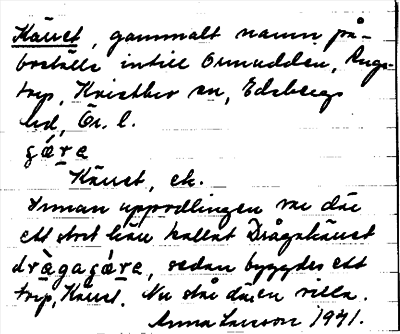 Käret, gammalt namn på
boställe intill Ormudden, Rugs-
torp, Knista sn, Edsbergs
hd, Ör. l.
Käret, ek.
Innan uppodlingen var där
ett stort kärr kallat Drågakäret
, sedan byggdes ett
torp, Käret. Nu står där en villa.
Anna Larsson 1941.